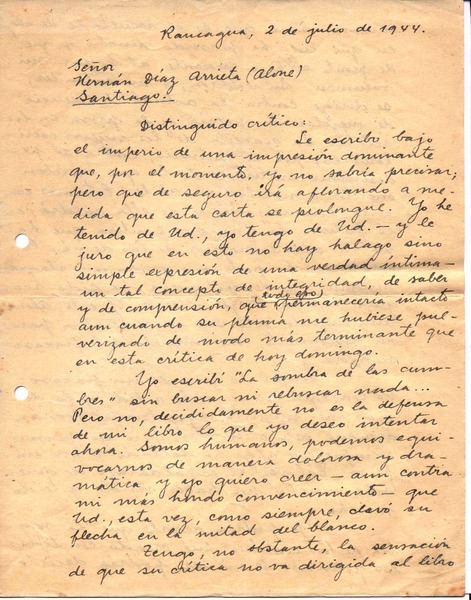 Rancagua, 2 de julio de 1944.
Señor
Hernán Díaz Arrieta (Alone)
Santiago.
Distinguido crítico:
Le escribo bajo
el imperio de una impresión dominante
que, por el momento, yo no sabría precisar;
pero que de seguro irá aflorando a me-
dida que esta carta se prolongue. Yo he
tenido de Ud., yo tengo de Ud. – y le
juro que en esto no hay halago sino
simple expresión de una verdad íntima –
un tal concepto de integridad, de saber
y de comprensión, que (todo eso) permanecería intacto
aun cuando su pluma me hubiese pul-
verizado de modo más terminante que
en esta crítica de hoy domingo.
Yo escribí "La sombra de las cum-
bres" sin buscar ni rebuscar nada...
Pero no, decididamente no es la defensa
de mi libro lo que yo deseo intentar
ahora. Somos humanos, podemos equi-
vocarnos de manera dolorosa y dra-
mática y yo quiero creer – aun contra
mi más hondo convencimiento – que
Ud., esta vez, como siempre, clavó su
flecha en la mitad del blanco.
Tengo, no obstante, la sensación
de que su crítica no va dirigida al libro